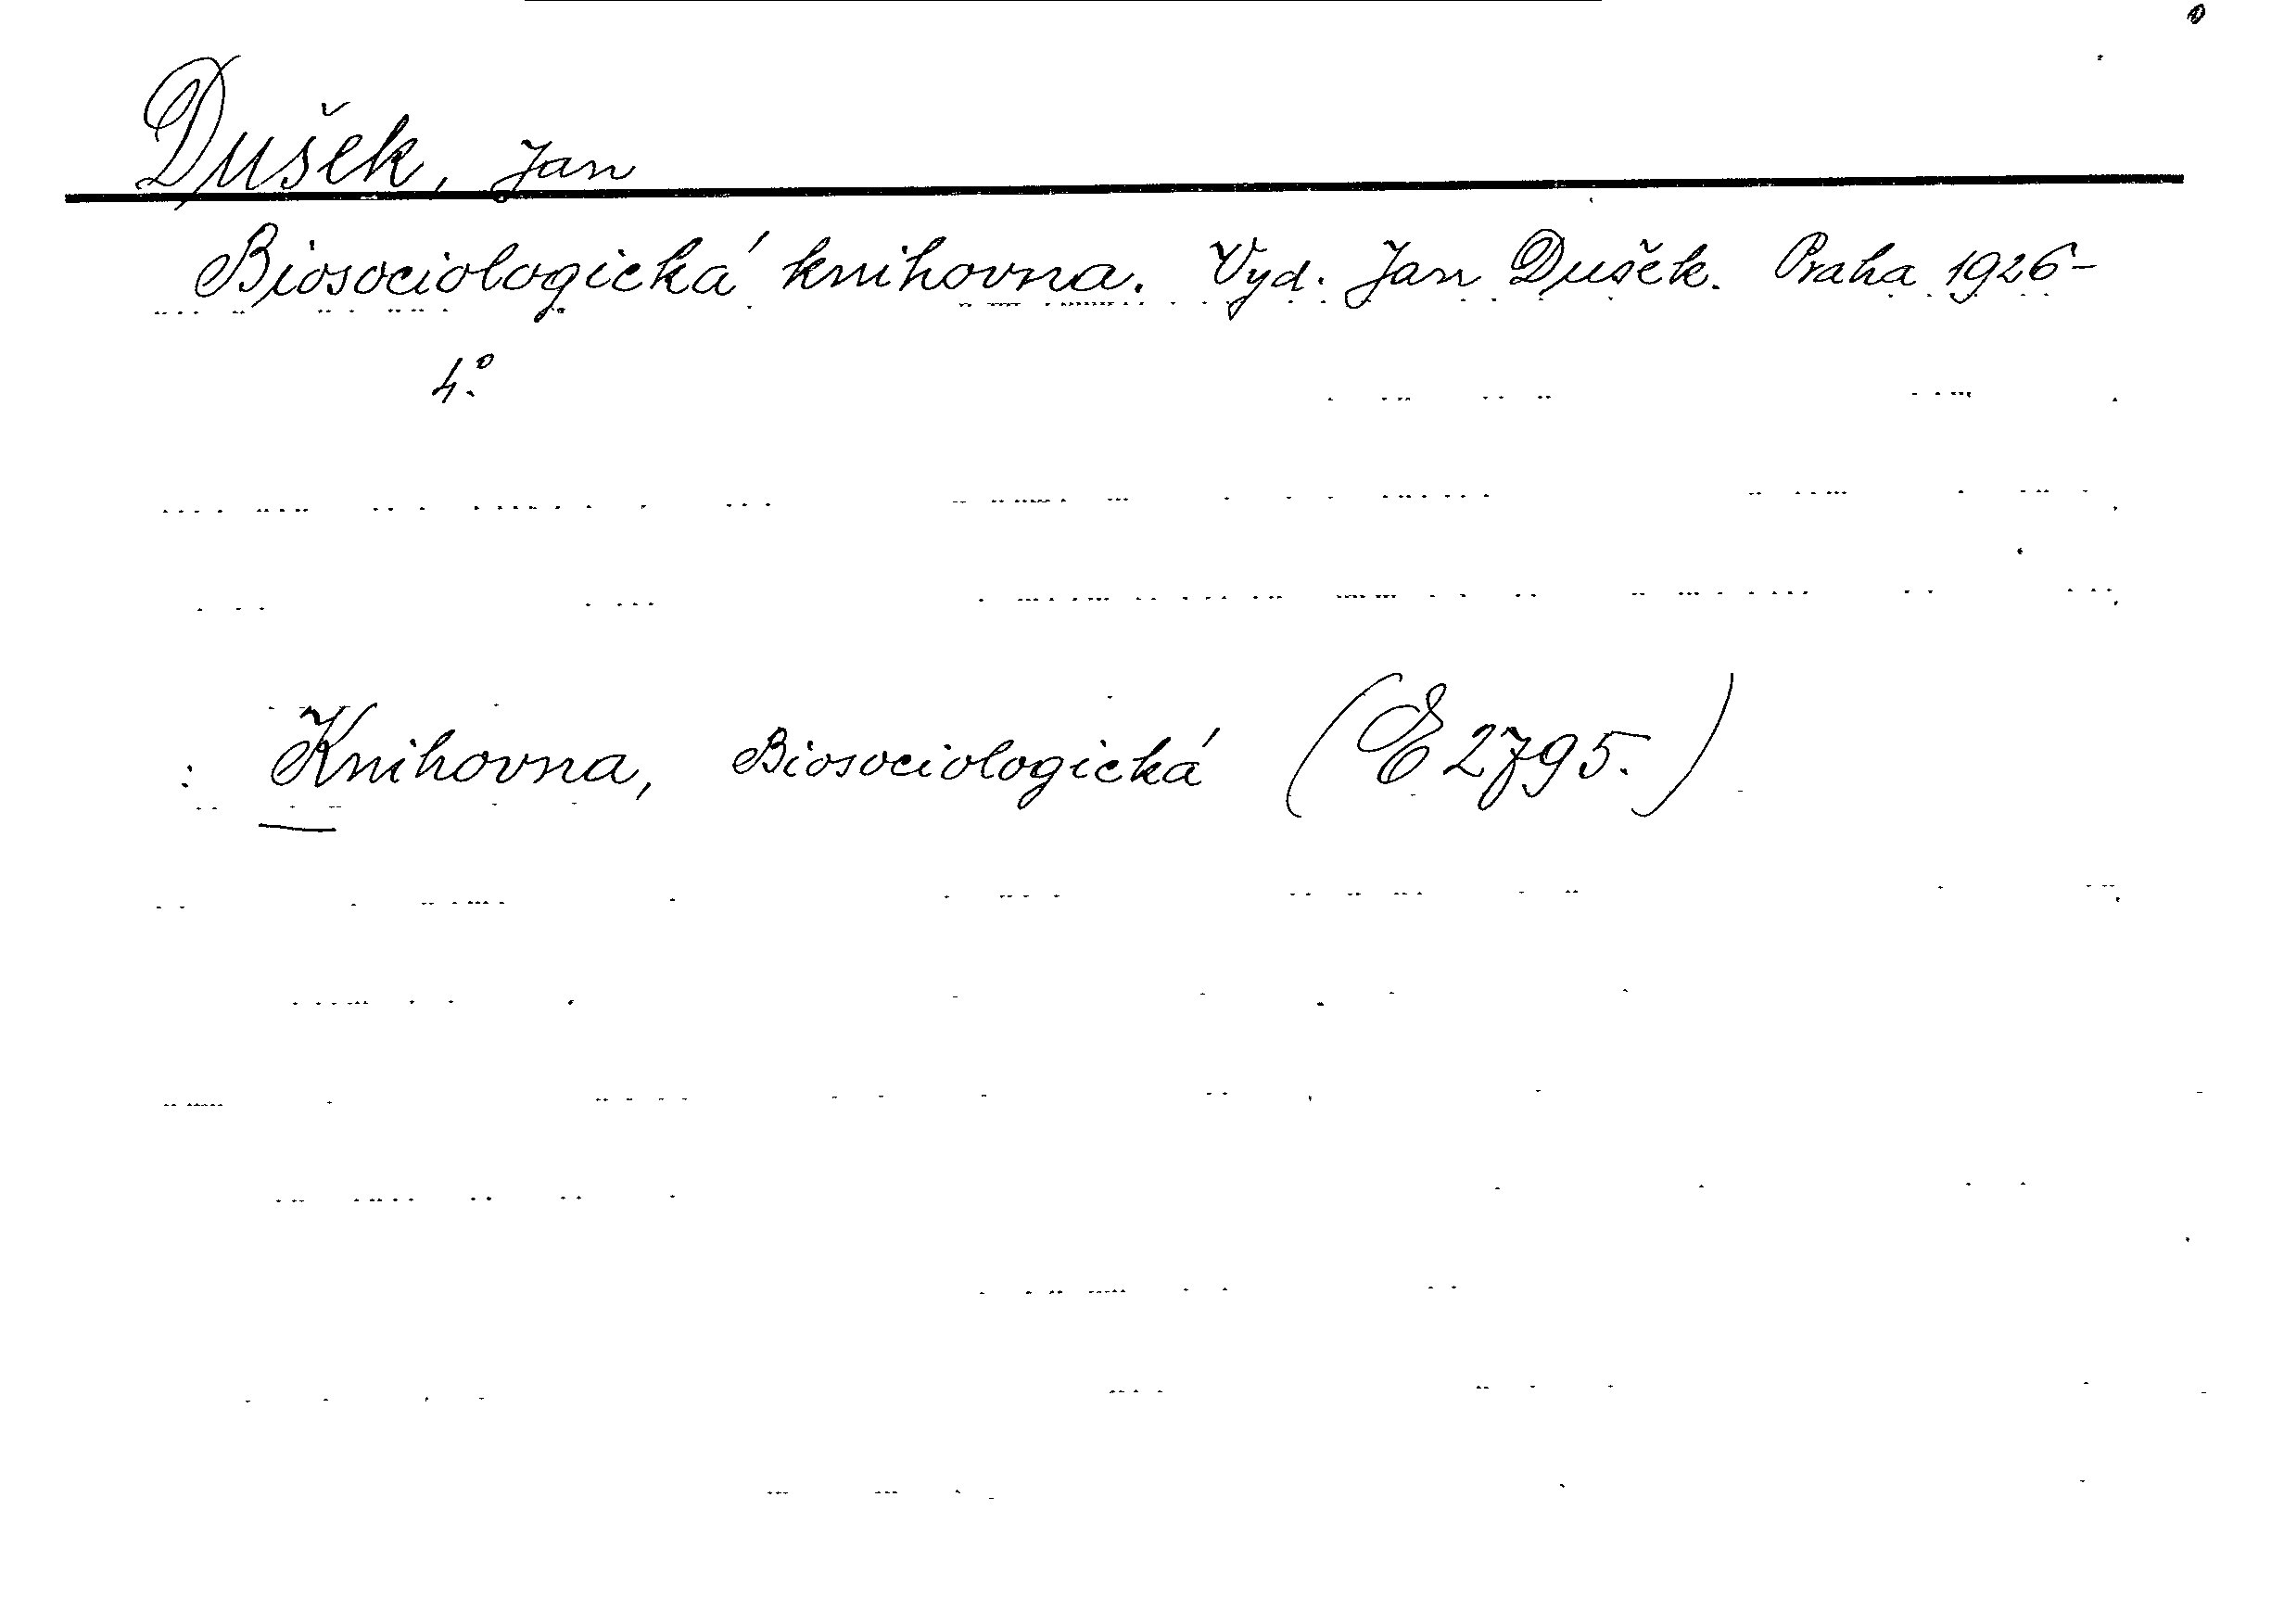 Dušek, Jan
Biosociologická knihovna. Vyd. Jan Dušek. Praha 1926-
4°.
: Knihovna, Biosociologická (E 2795.)